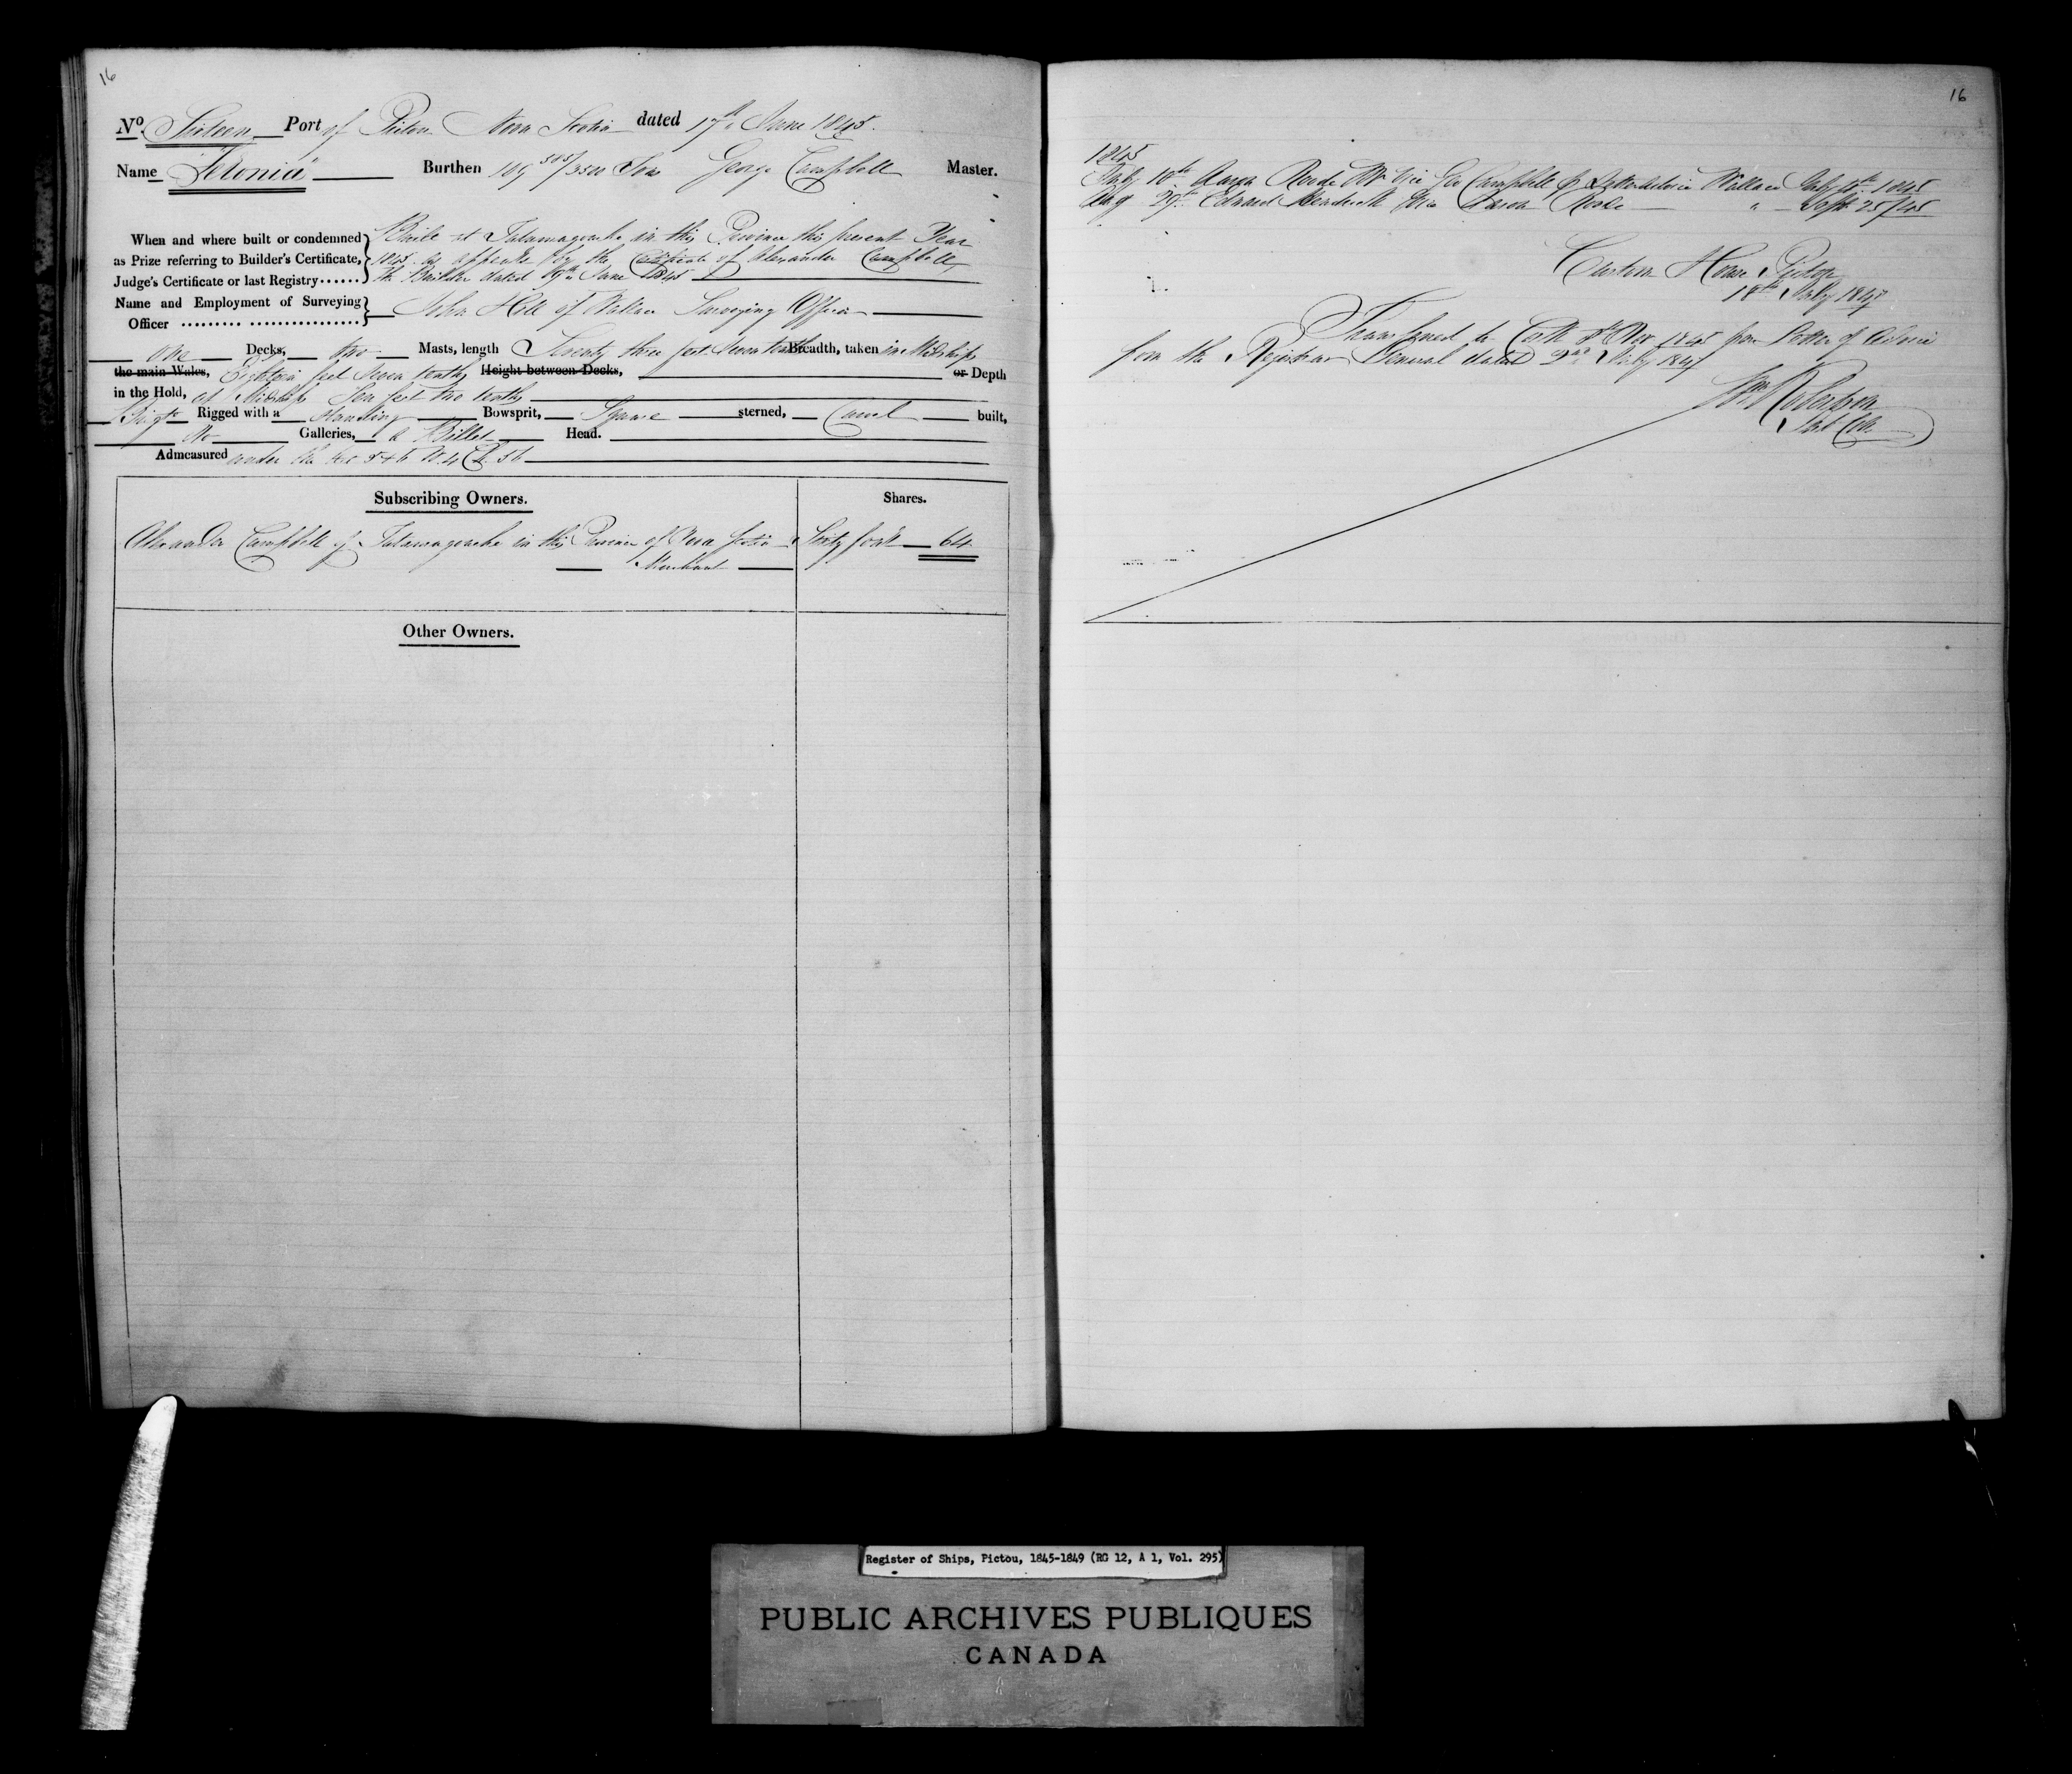 16
No. Sixteen Port of Pictou Nova Scotia dated 17th June 1845.
Name "Felonia" Burthen 109 505/3500 Tons George Campbell Master.
When and where built or condemned as Prize referring to Builder's Certificate, Judge's Certificate or last Registry......
Built at Tatamagouche in this Province this present Year
1845 as appears by the Certificate of Alexander Campbell
the Builder dated 9th June 1845
Name and Employment of Surveying Officer ......... .................
John Hill of Wallace Surveying Officer
one Decks, two Masts, length Seventy three feet seven tenths Breadth, taken in Midships
the main Wales, Eighteen feet seven tenths Height between Decks, or Depth
in the Hold, at Midships Ten feet two tenths
Brigt Rigged with a Standing Bowsprit, Square sterned, Carvel built,
No Galleries, a Billet Head.
Admeasured under the Act 5 & 6 W. 4 Ch. 56
Subscribing Owners. Shares.
Alexander Campbell of Tatamagouche in this Province of Nova Scotia Sixty four 64
Merchant
Other Owners.
16
1845
July 10th Aaron Roode Mr Vice Geo Campbell Wallace July 10th 1845
Aug 29th Edward Vice Aaron Roode " Sept 25/45
Custom House Pictou
18th July 1847
Transferred to Cork 8th Nov 1845 per Letter of Advice
from the Registrar General dated 2nd July 1847
Wm Robertson
Register of Ships, Pictou, 1845-1849 (RG 12, A 1, Vol. 295)
PUBLIC ARCHIVES PUBLIQUES
CANADA